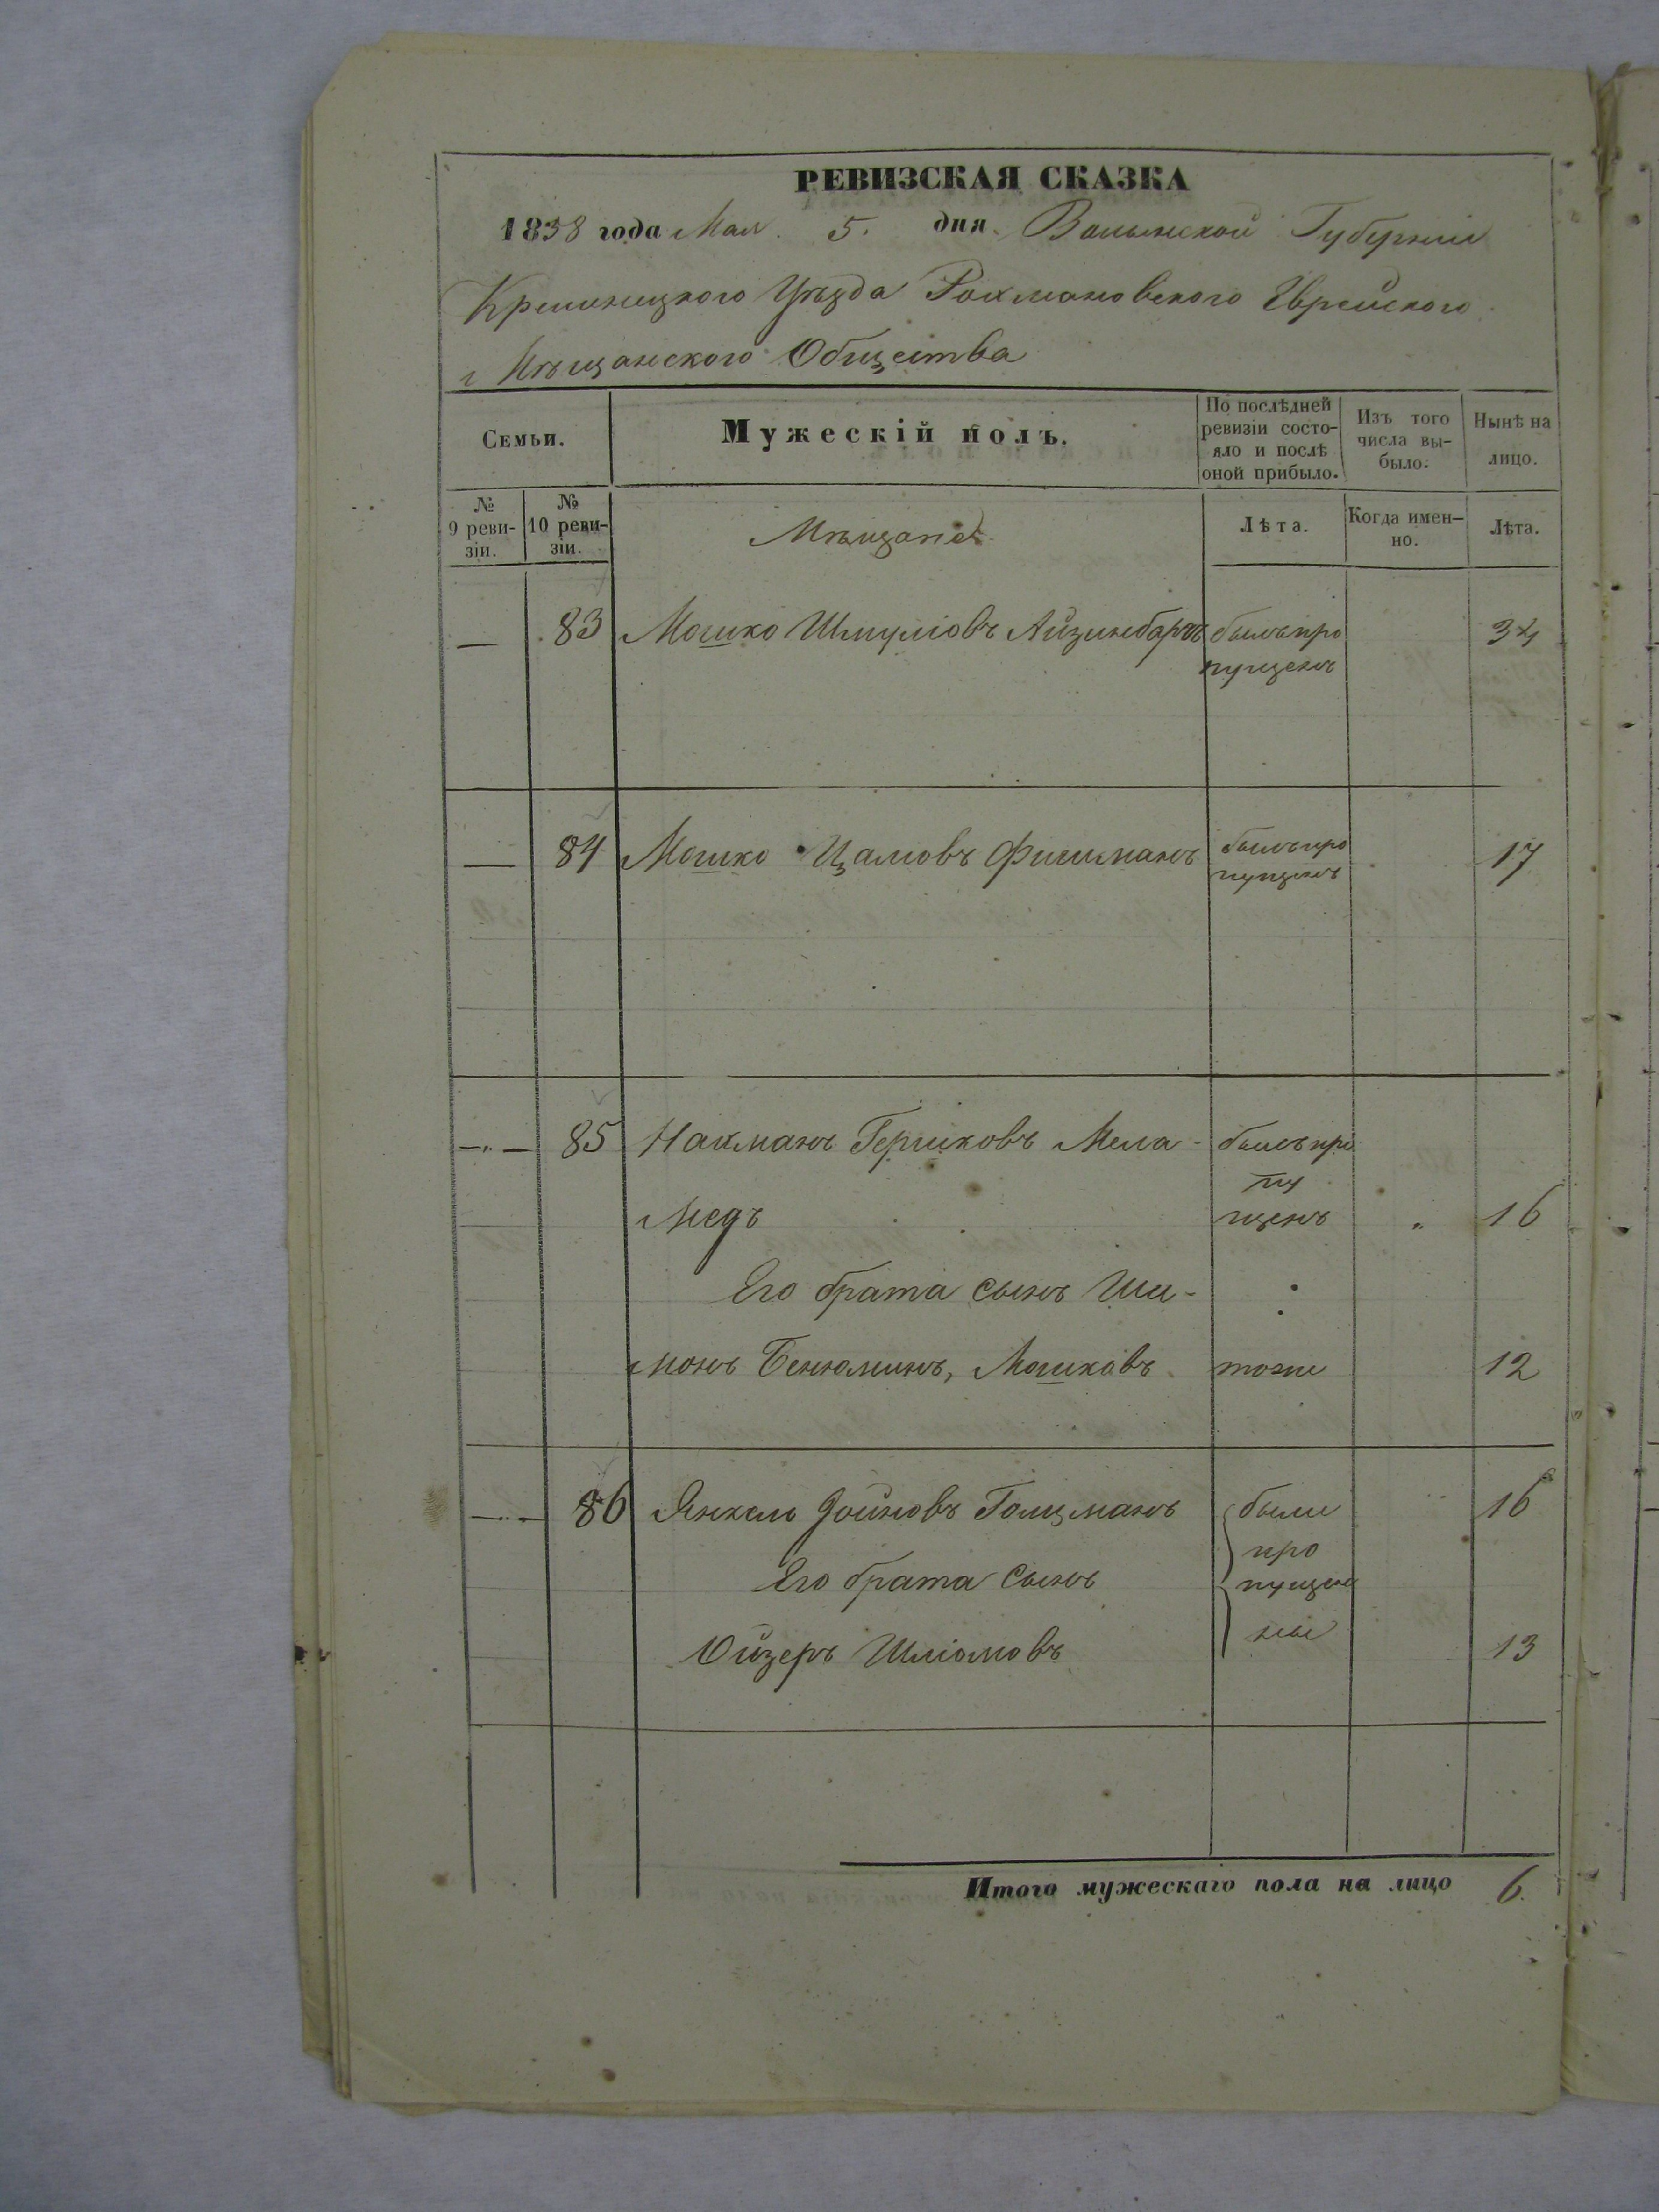 РЕВИЗСКАЯ СКАЗКА
1858 года Мая 5. дня. Волынской Губерніи
Кременецкого Уѣзда Рохмановского Еврейского
Мѣщанского Общества
Семьи.
Мужескій полъ.
По послѣдней ревизіи состо-
яло и послѣ
оной прибыло.
Изъ того
числа вы-
было.
Нынѣ на
лицо.
№
9 реви-
зіи.
№
10 реви-
зіи.
Мѣщане
Лѣта.
Когда имен-
но.
Лѣта.
— 83 Мошко Шмуліовъ былъ про 34
пущенъ
— 84 Мошко Фишманъ былъ про 17
пущенъ
—„— 85 Нахманъ Гершковъ Мела- былъ про
пу
медъ щенъ „ 16
Его брата сынъ Ши-
монъ Бенюминъ, Мошковъ тоже 12
—„— 86 Янкель Голцманъ были 16
про
Его брата сынъ пущен
Ойзеръ Шліомовъ ные 13
Итого мужескаго пола на лицо 6.